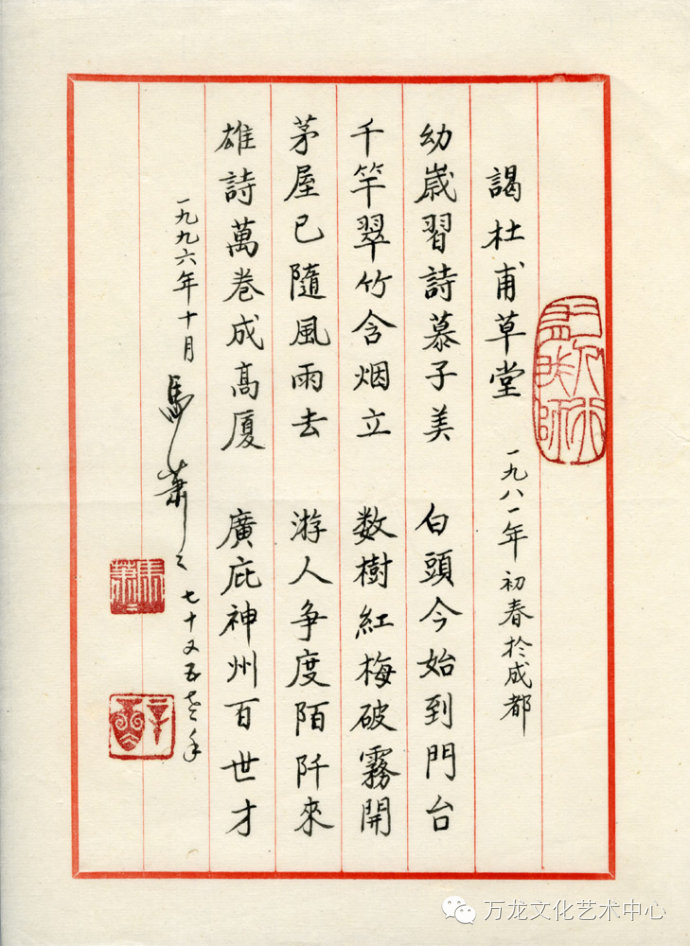 謁杜甫草堂 一九八一年初春於成都
幼嵗習詩慕子美 白頭今始到門台
千竿翠竹含烟立 数樹紅梅破霧開
茅屋已隨風雨去 游人争度陌阡來
雄詩萬卷成高厦 廣庇神州百世才
一九九六年十月 馬萧萧 七十又五
馬萧
万龙文化艺术中心